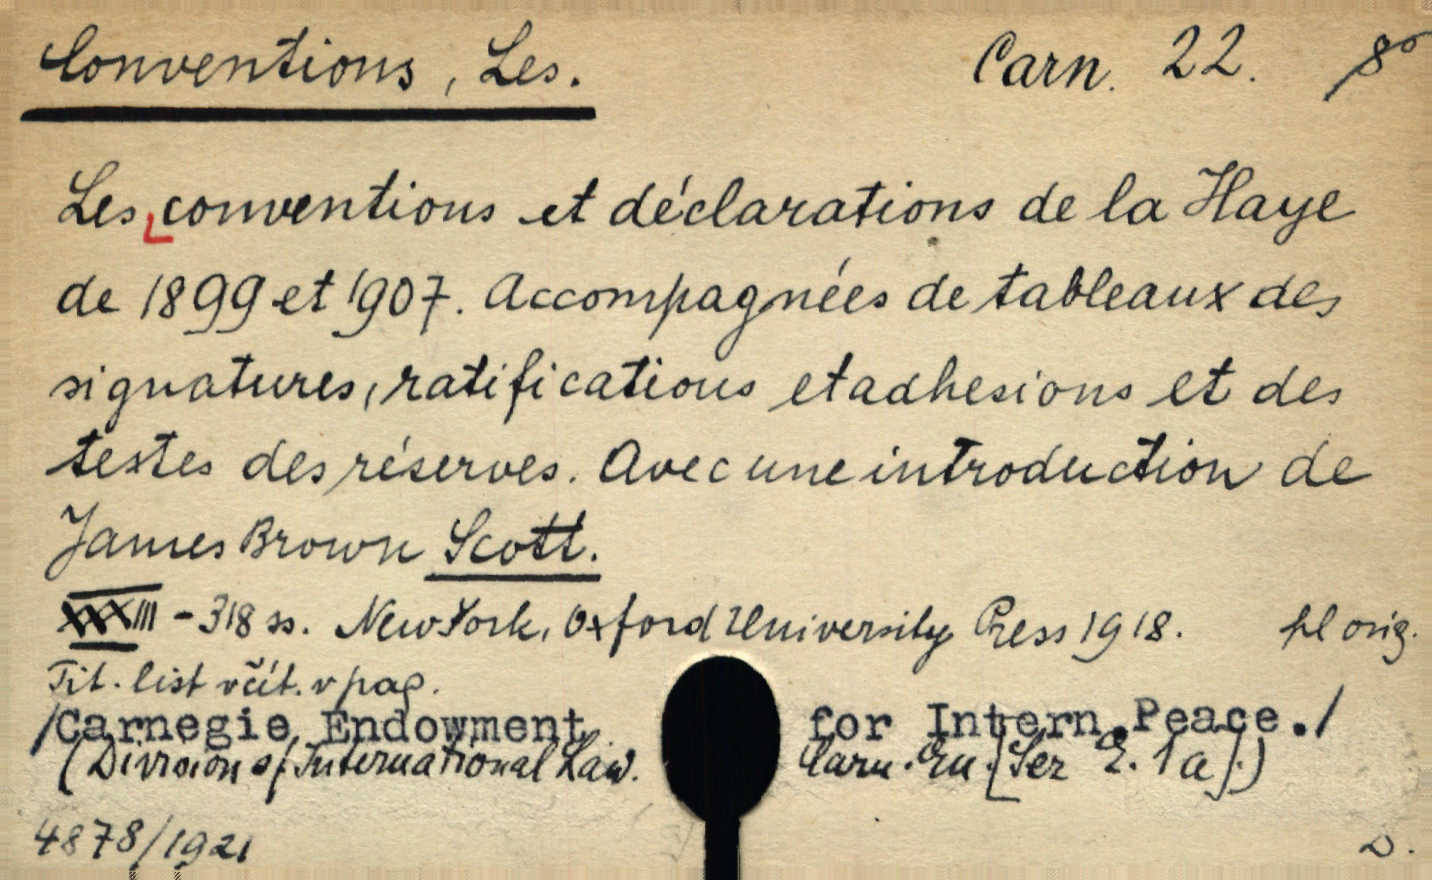 Conventions, Les. Carn. 22. 8°
Les conventions et déclarations de la Haye
de 1899 et 1907. Accompagnées de tableaux des
signatures, ratifications et adhesions et des
textes des réserves. Avec une introduction de
James Brown Scott.
XXXIII - 318 ss. New York, Oxford University Press 1918. pl orig.
Tit. list včít. v pag.
/Carnegie Endowment for Intern. Peace./
(Division of International Law. Carn. En. [Ser 2. 1a].)
4878/1921 D.